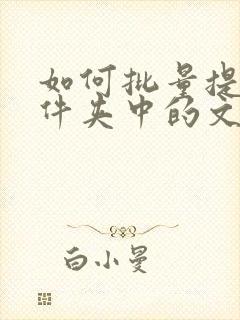 如何批量提
件夹中的文
白小曼